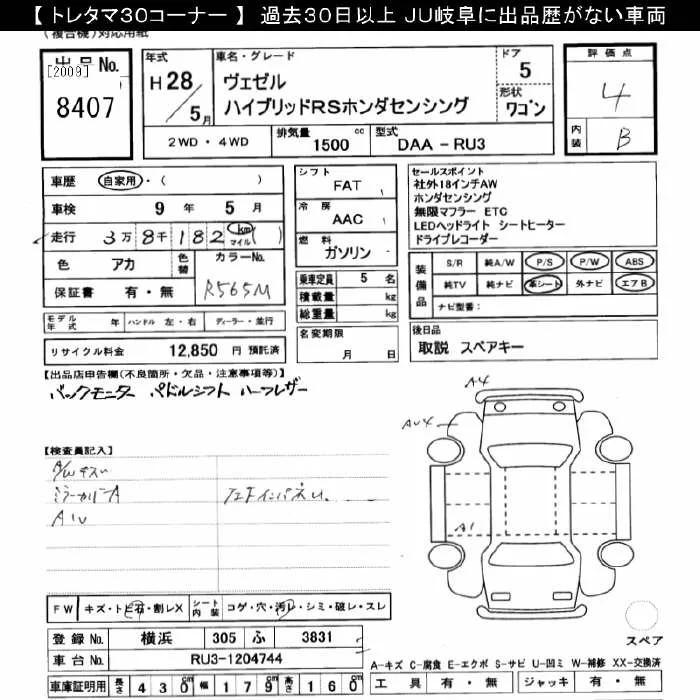 【 トレタマ30コーナー 】 過去30日以上 JU岐阜に出品歴がない車両
（複合機）対応用紙
出品No.
[2009]
8407
年式
H 28
5 月
車名・グレード
ヴェゼル
ハイブリッドRSホンダセンシング
ドア
5
形状
ワゴン
評価点
4
内装
B
2WD ・ 4WD
排気量
1500 cc
型式
DAA - RU3
車歴 自家用・( )
車検 9 年 5 月
走行 3万 8千 182 km マイル ( )
色 アカ 色替 カラーNo.
保証書 有・無 R565M
モデル年式 年 ハンドル 左・右 ディーラー・並行
リサイクル料金 12,850 円 預託済
シフト
FAT
冷房
AAC
燃料
ガソリン
乗車定員 5 名
積載量 kg
総重量 kg
名変期限
月 日
セールスポイント
社外18インチAW
ホンダセンシング
無限マフラー ETC
LEDヘッドライト シートヒーター
ドライブレコーダー
装備品
S/R 純A/W P/S P/W ABS
純TV 純ナビ 革シート 外ナビ エアB
ナビ型番：
後日品
取説 スペアキー
【出品店申告欄(不良箇所・欠品・注意事項等)】
バックモニター パドルシフト ハーフレザー
【検査員記入】
A/Wキズ
ミラーカバーA
A1U
A4
AU4
A1
FW キズ・トビ石・割レX シート内装 コゲ・穴・汚レ・シミ・破レ・スレ
登録No. 横浜 305 ふ 3831
車台No. RU3-1204744
車庫証明用 長さ 430 cm 幅 179 cm 高さ 160 cm
スペア
A-キズ C-腐食 E-エクボ S-サビ U-凹ミ W-補修 XX-交換済
工具 有・無 ジャッキ 有・無